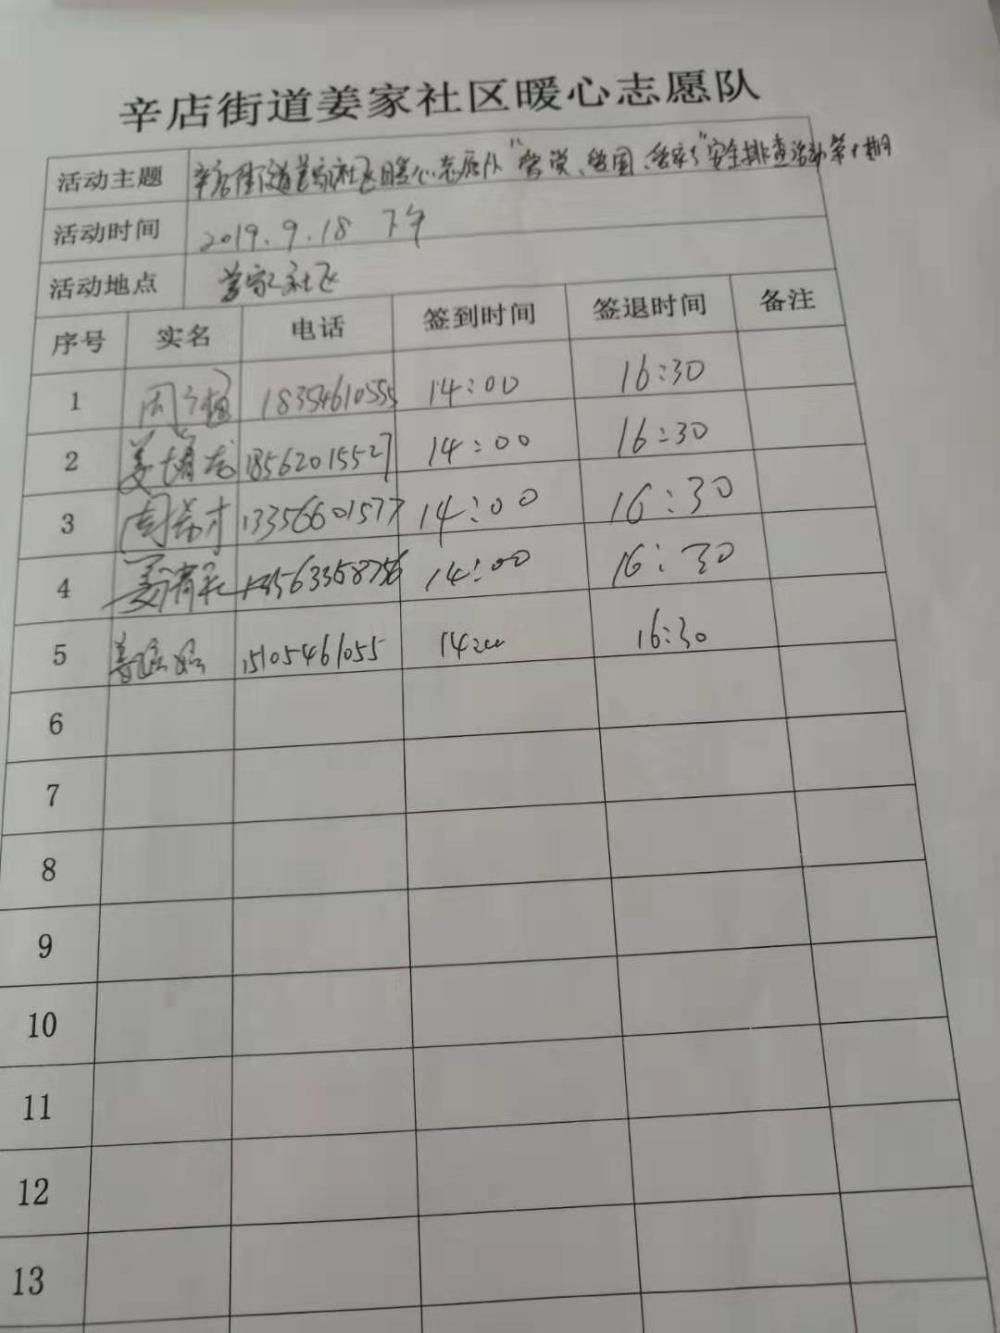 辛店街道姜家社区暖心志愿队
活动主题 辛店街道姜家社区暖心志愿队“ 安全排查活动第十期
活动时间 2019.9.18 下午
活动地点 姜家社区
序号 实名 电话 签到时间 签退时间 备注
1 周 18354610555 14:00 16:30
2 姜 18562015527 14:00 16:30
3 周 才 13356601577 14:00 16:30
4 姜 14:00 16:30
5 姜 15105461055 14:00 16:30
6
7
8
9
10
11
12
13